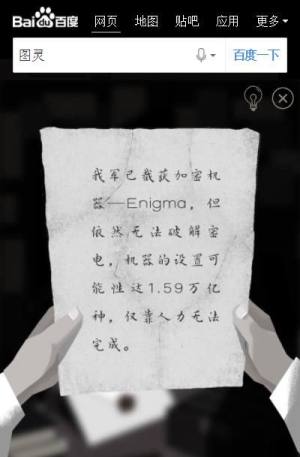 Bai百度 网页 地图 贴吧 应用 更多
图灵 百度一下
我军已截获加密机
器—Enigma，但
依然无法破解密
电，机器的设置可
能性达1.59万亿
种，仅靠人力无法
完成。